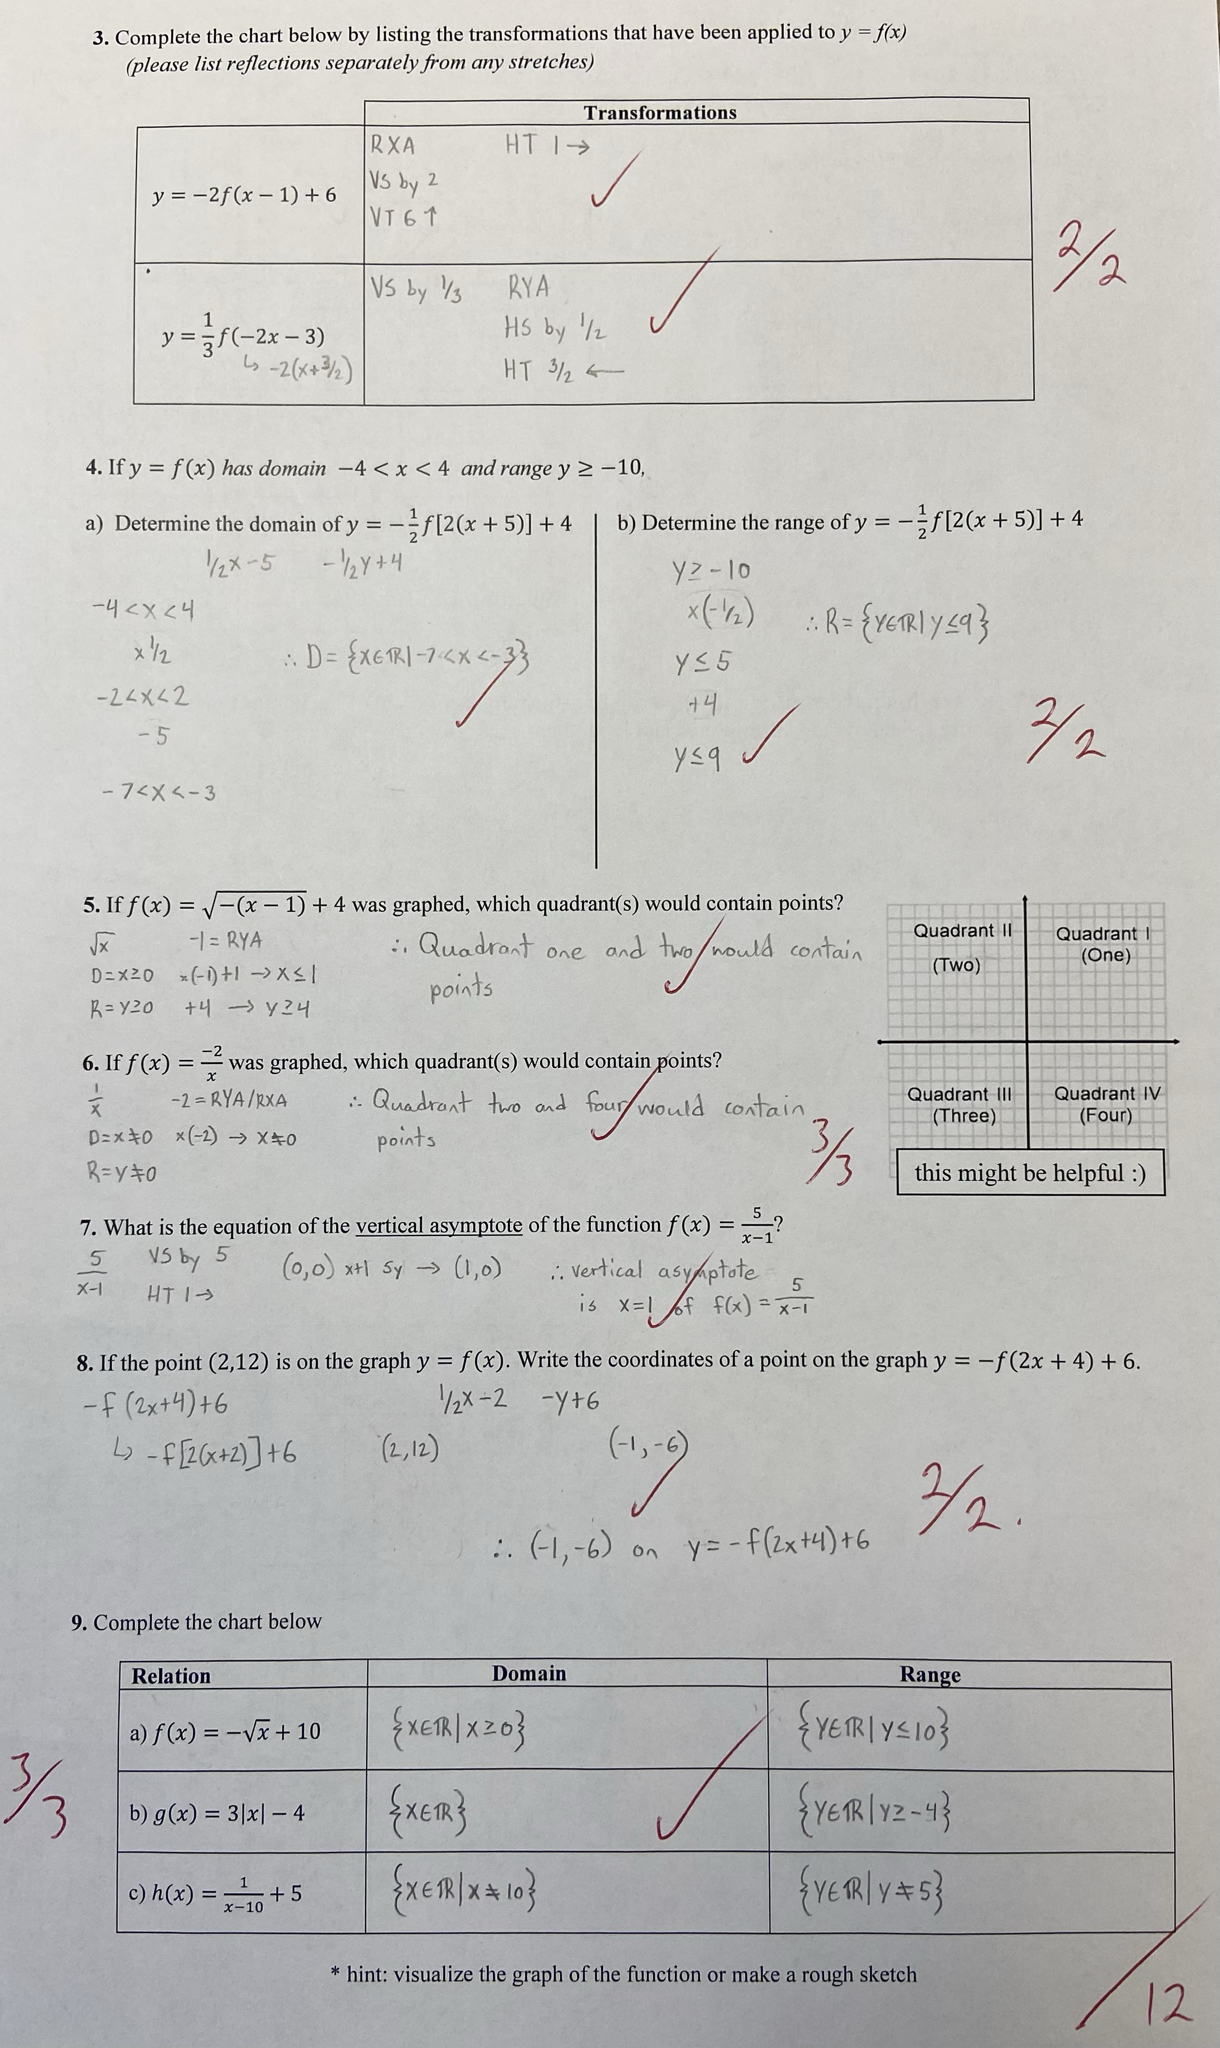 3. Complete the chart below by listing the transformations that have been applied to y = f(x)
(please list reflections separately from any stretches)
Transformations
y = −2f(x − 1) + 6
RXA HT 1→
VS by 2
VT 6 ↑
2/2
y = 1/3 f(−2x − 3)
↳ -2(x+3/2)
VS by 1/3 RYA
HS by 1/2
HT 3/2 ←
4. If y = f(x) has domain −4 < x < 4 and range y ≥ −10,
a) Determine the domain of y = −1/2 f[2(x + 5)] + 4
1/2x-5 -1/2y+4
-4<x<4
x 1/2
-2<x<2
-5
-7<x<-3
∴ D= {XEℝ|-7<x<-3}
b) Determine the range of y = −1/2 f[2(x + 5)] + 4
y≥-10
x(-1/2)
y≤5
+4
y≤9
∴ R= {YEℝ|y≤9}
2/2
5. If f(x) = √−(x − 1) + 4 was graphed, which quadrant(s) would contain points?
√x -1= RYA
D=x≥0 x(-1)+1 → x≤1
R=y≥0 +4 → y≥4
∴ Quadrant one and two would contain
points
Quadrant II
(Two)
Quadrant I
(One)
Quadrant III
(Three)
Quadrant IV
(Four)
this might be helpful :)
6. If f(x) = −2/x was graphed, which quadrant(s) would contain points?
1/x -2 = RYA/RXA
D=x≠0 x(-2) → x≠0
R=y≠0
∴ Quadrant two and four would contain
points
3/3
7. What is the equation of the vertical asymptote of the function f(x) = 5/x−1?
5/x-1 VS by 5
HT 1→
(0,0) x+1 5y → (1,0)
∴ vertical asymptote
is x=1 of f(x) = 5/x-1
8. If the point (2,12) is on the graph y = f(x). Write the coordinates of a point on the graph y = −f(2x + 4) + 6.
-f (2x+4)+6 1/2x-2 -y+6
↳ -f[2(x+2)]+6 (2,12) (-1,-6)
∴ (-1,-6) on y=-f(2x+4)+6
2/2.
9. Complete the chart below
Relation Domain Range
a) f(x) = −√x + 10 {XEℝ|X≥0} {YEℝ|Y≤10}
b) g(x) = 3|x| − 4 {XEℝ} {YEℝ|Y≥-4}
c) h(x) = 1/x−10 + 5 {XEℝ|X≠10} {YEℝ|Y≠5}
3/3
* hint: visualize the graph of the function or make a rough sketch
/12